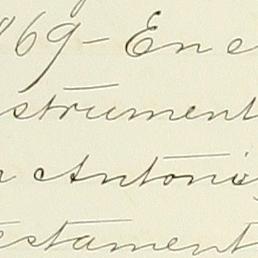 869- Ene
strument
n Antonio
estament